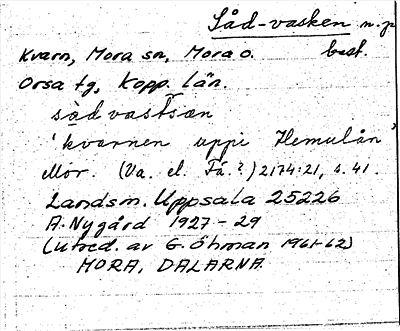 Såd-vasken n.p
Kvarn, Mora sn, Mora o. best.
Orsa tg, Kopp. län.
såd vastsæn
'kvarnen uppi Hemulån'
Mor. (Va. el. Få?) 2174:21, s. 41.
Landsm. Uppsala 25226
A. Nygård 1927-29
(Utred. av G. Öhman 1961-62)
MORA, DALARNA.